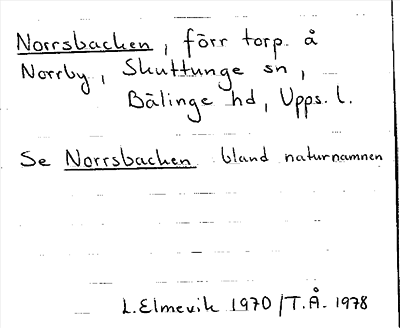 Norrsbacken, förr torp å
Norrby, Skuttunge sn,
Bälinge hd, Upps. l.
Se Norrsbacken bland naturnamnen
L. Elmevik 1970 / T.Å. 1978